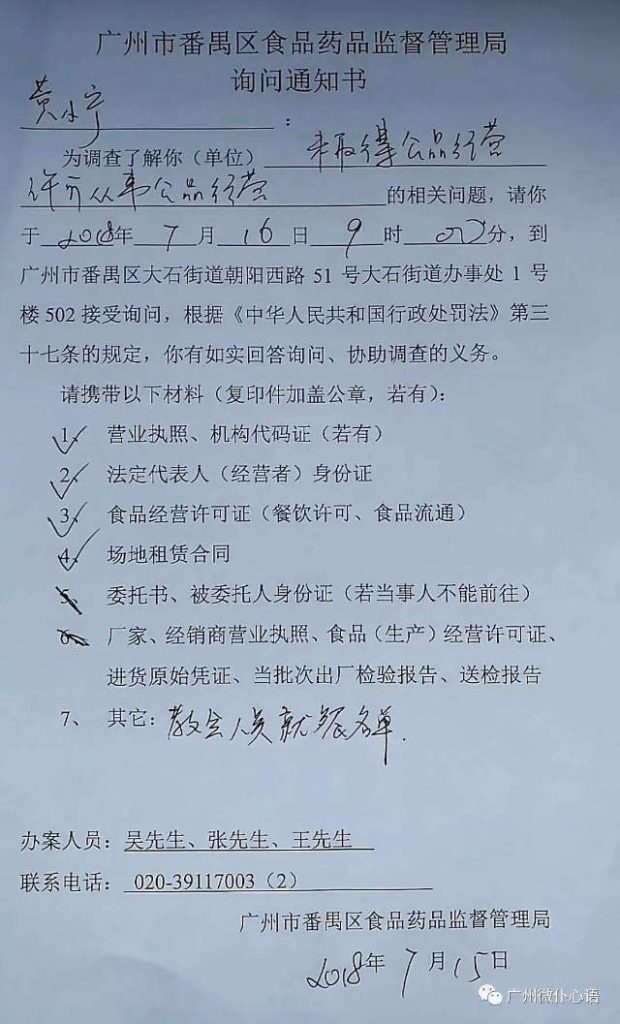 广州市番禺区食品药品监督管理局
询问通知书
黄小宁：
为调查了解你（单位）未取得食品经营
许可从事食品经营的相关问题，请你
于2018年7月16日9时00分，到
广州市番禺区大石街道朝阳西路 51 号大石街道办事处 1 号
楼 502 接受询问，根据《中华人民共和国行政处罚法》第三
十七条的规定，你有如实回答询问、协助调查的义务。
请携带以下材料（复印件加盖公章，若有）：
1、营业执照、机构代码证（若有）
2、法定代表人（经营者）身份证
3、食品经营许可证（餐饮许可、食品流通）
4、场地租赁合同
5、委托书、被委托人身份证（若当事人不能前往）
6、厂家、经销商营业执照、食品（生产）经营许可证、
进货原始凭证、当批次出厂检验报告、送检报告
7、其它：教会人员就餐名单.
办案人员：吴先生、张先生、王先生
联系电话：020-39117003（2）
广州市番禺区食品药品监督管理局
2018年7月15日
广州微仆心语